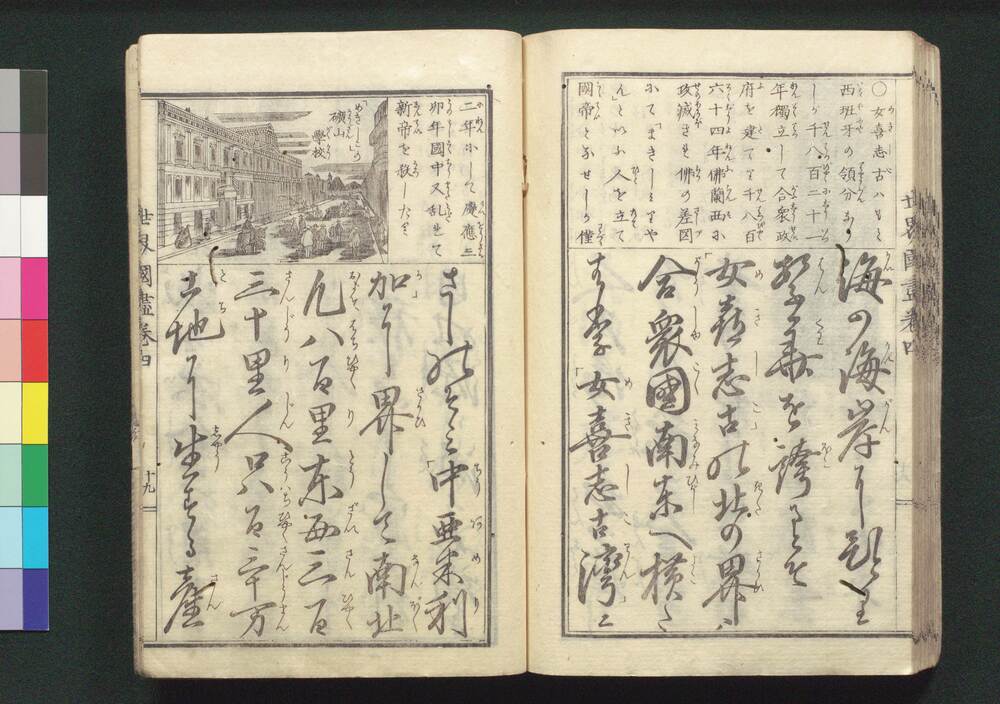 〇女喜志古ハもと
西班牙の領分なり
しが千八百二十一
年獨立して合衆政
府を建て千八百
六十四年佛蘭西に
攻滅され佛の差図
にて「まきしミりや
ん」といふ人を立て
國帝となせしが僅
海の海岸に
を誇るとぞ
女喜志古の北の界ハ
合衆國南東へ横た
はり「女喜志古湾」ニ
世界國盡卷四
二年にして慶應三
卯年國中又乱れて
新帝を殺したり
「めきしこ」の
礦山
学校
さしのぞミ「中亜米利
加」に界して南北
凡八百里東西三百
三十里人口八百三十万
土地に生ずる産
世界國盡卷四
十九